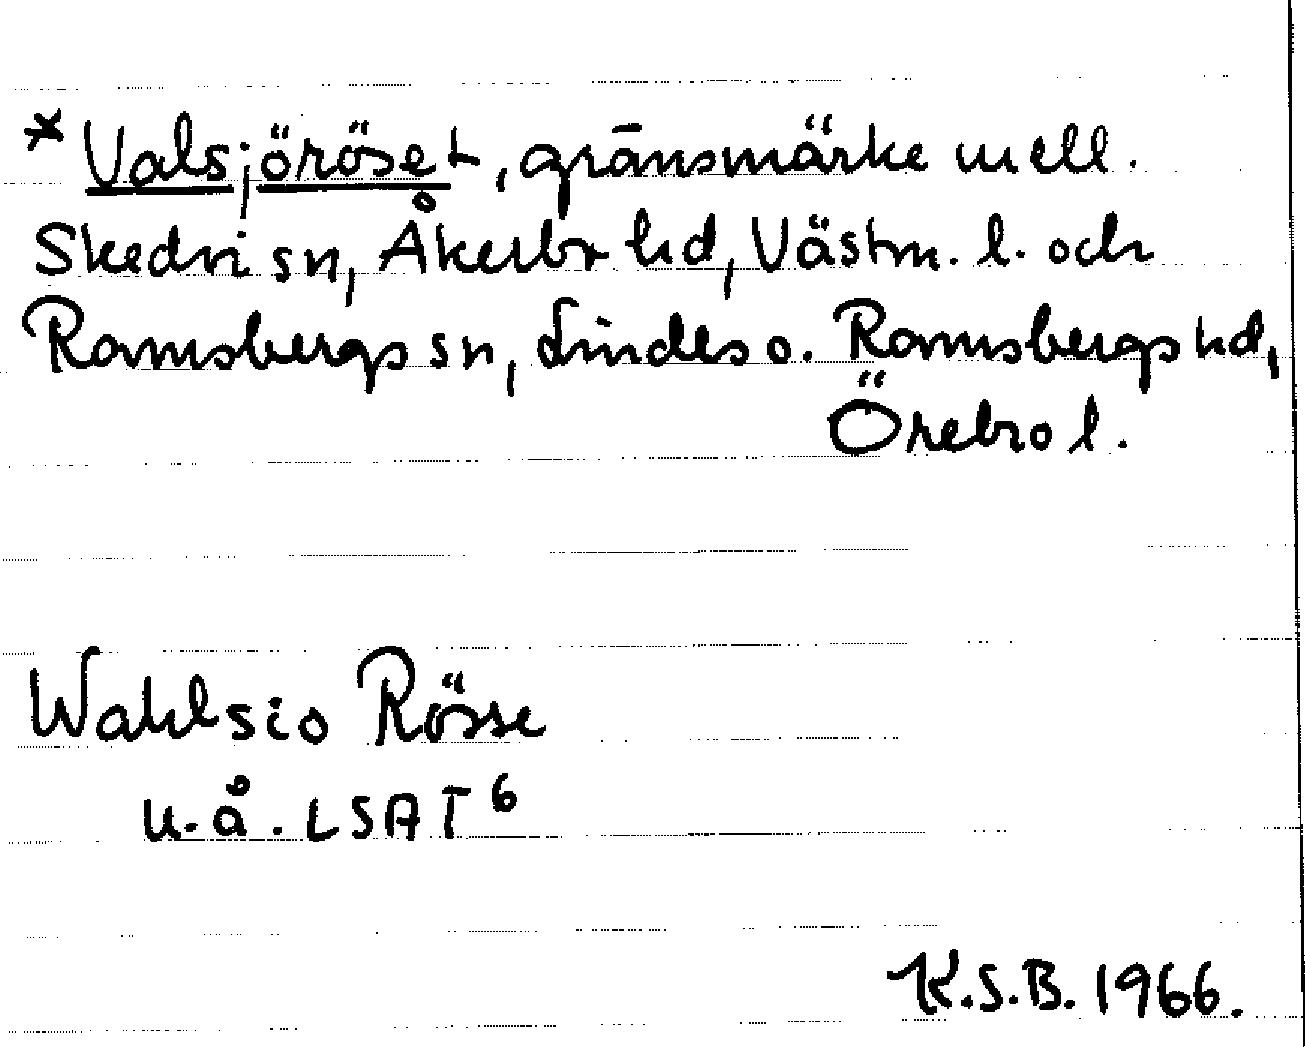 * Valsjöröset, gränsmärke mell.
Skedvi sn, Åkerbr hd, Västm. l. och
Ramsbergs sn, Lindes o. Ramsbergs hd,
Örebro l.
Wahlsio Rösse
u.å. LSA T⁶
K.S.B. 1966.